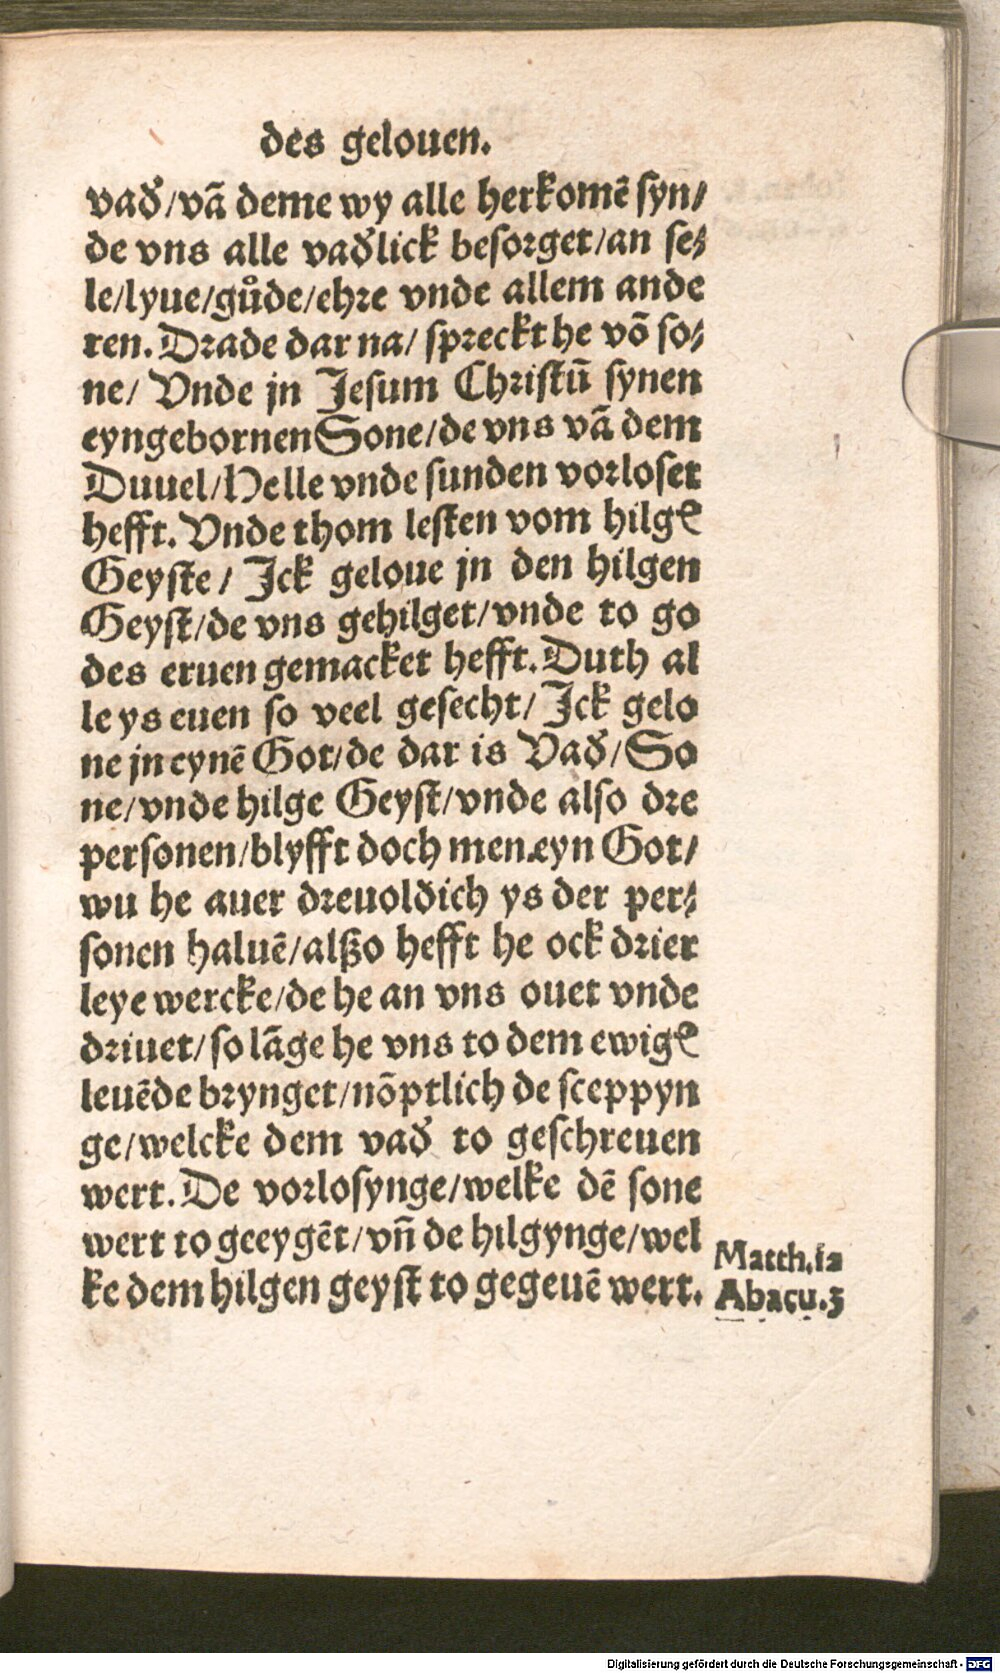 des gelouen.
vad̕/vā deme wy alle herkomē syn/
de vns alle vad̕lick besorget/an se⸗
le/lyue/gůde/ehre vnde allem ande
ren. Drade dar na/ spreckt he vō so⸗
ne/ Vnde jn Jesum Christū synen
eyngebornen Sone/de vns vā dem
Duuel/Helle vnde sunden vorloset
hefft. Vnde thom lesten vom hilgē
Geyste/ Jck geloue jn den hilgen
Geyst/de vns gehilget/vnde to go
des eruen gemacket hefft. Duth al
le ys euen so veel gesecht/ Jck gelo
ne jn eynē Got/de dar is Vad̕/So
ne/vnde hilge Geyst/vnde also dre
personen/blyfft doch men eyn Got/
wu he auer dreuoldich ys der per⸗
sonen haluē/alßo hefft he ock drier
leye wercke/de he an vns ouet vnde
driuet/so lāge he vns to dem ewigē
leuēde brynget/nōptlich de sceppyn
ge/welcke dem vad̕ to geschreuen
wert. De vorlosynge/welke dē sone
wert to geeygēt/vn̄ de hilgynge/wel
ke dem hilgen geyst to gegeuē wert.
Matth.12
Abacu.3
Digitalisierung gefördert durch die Deutsche Forschungsgemeinschaft - DFG